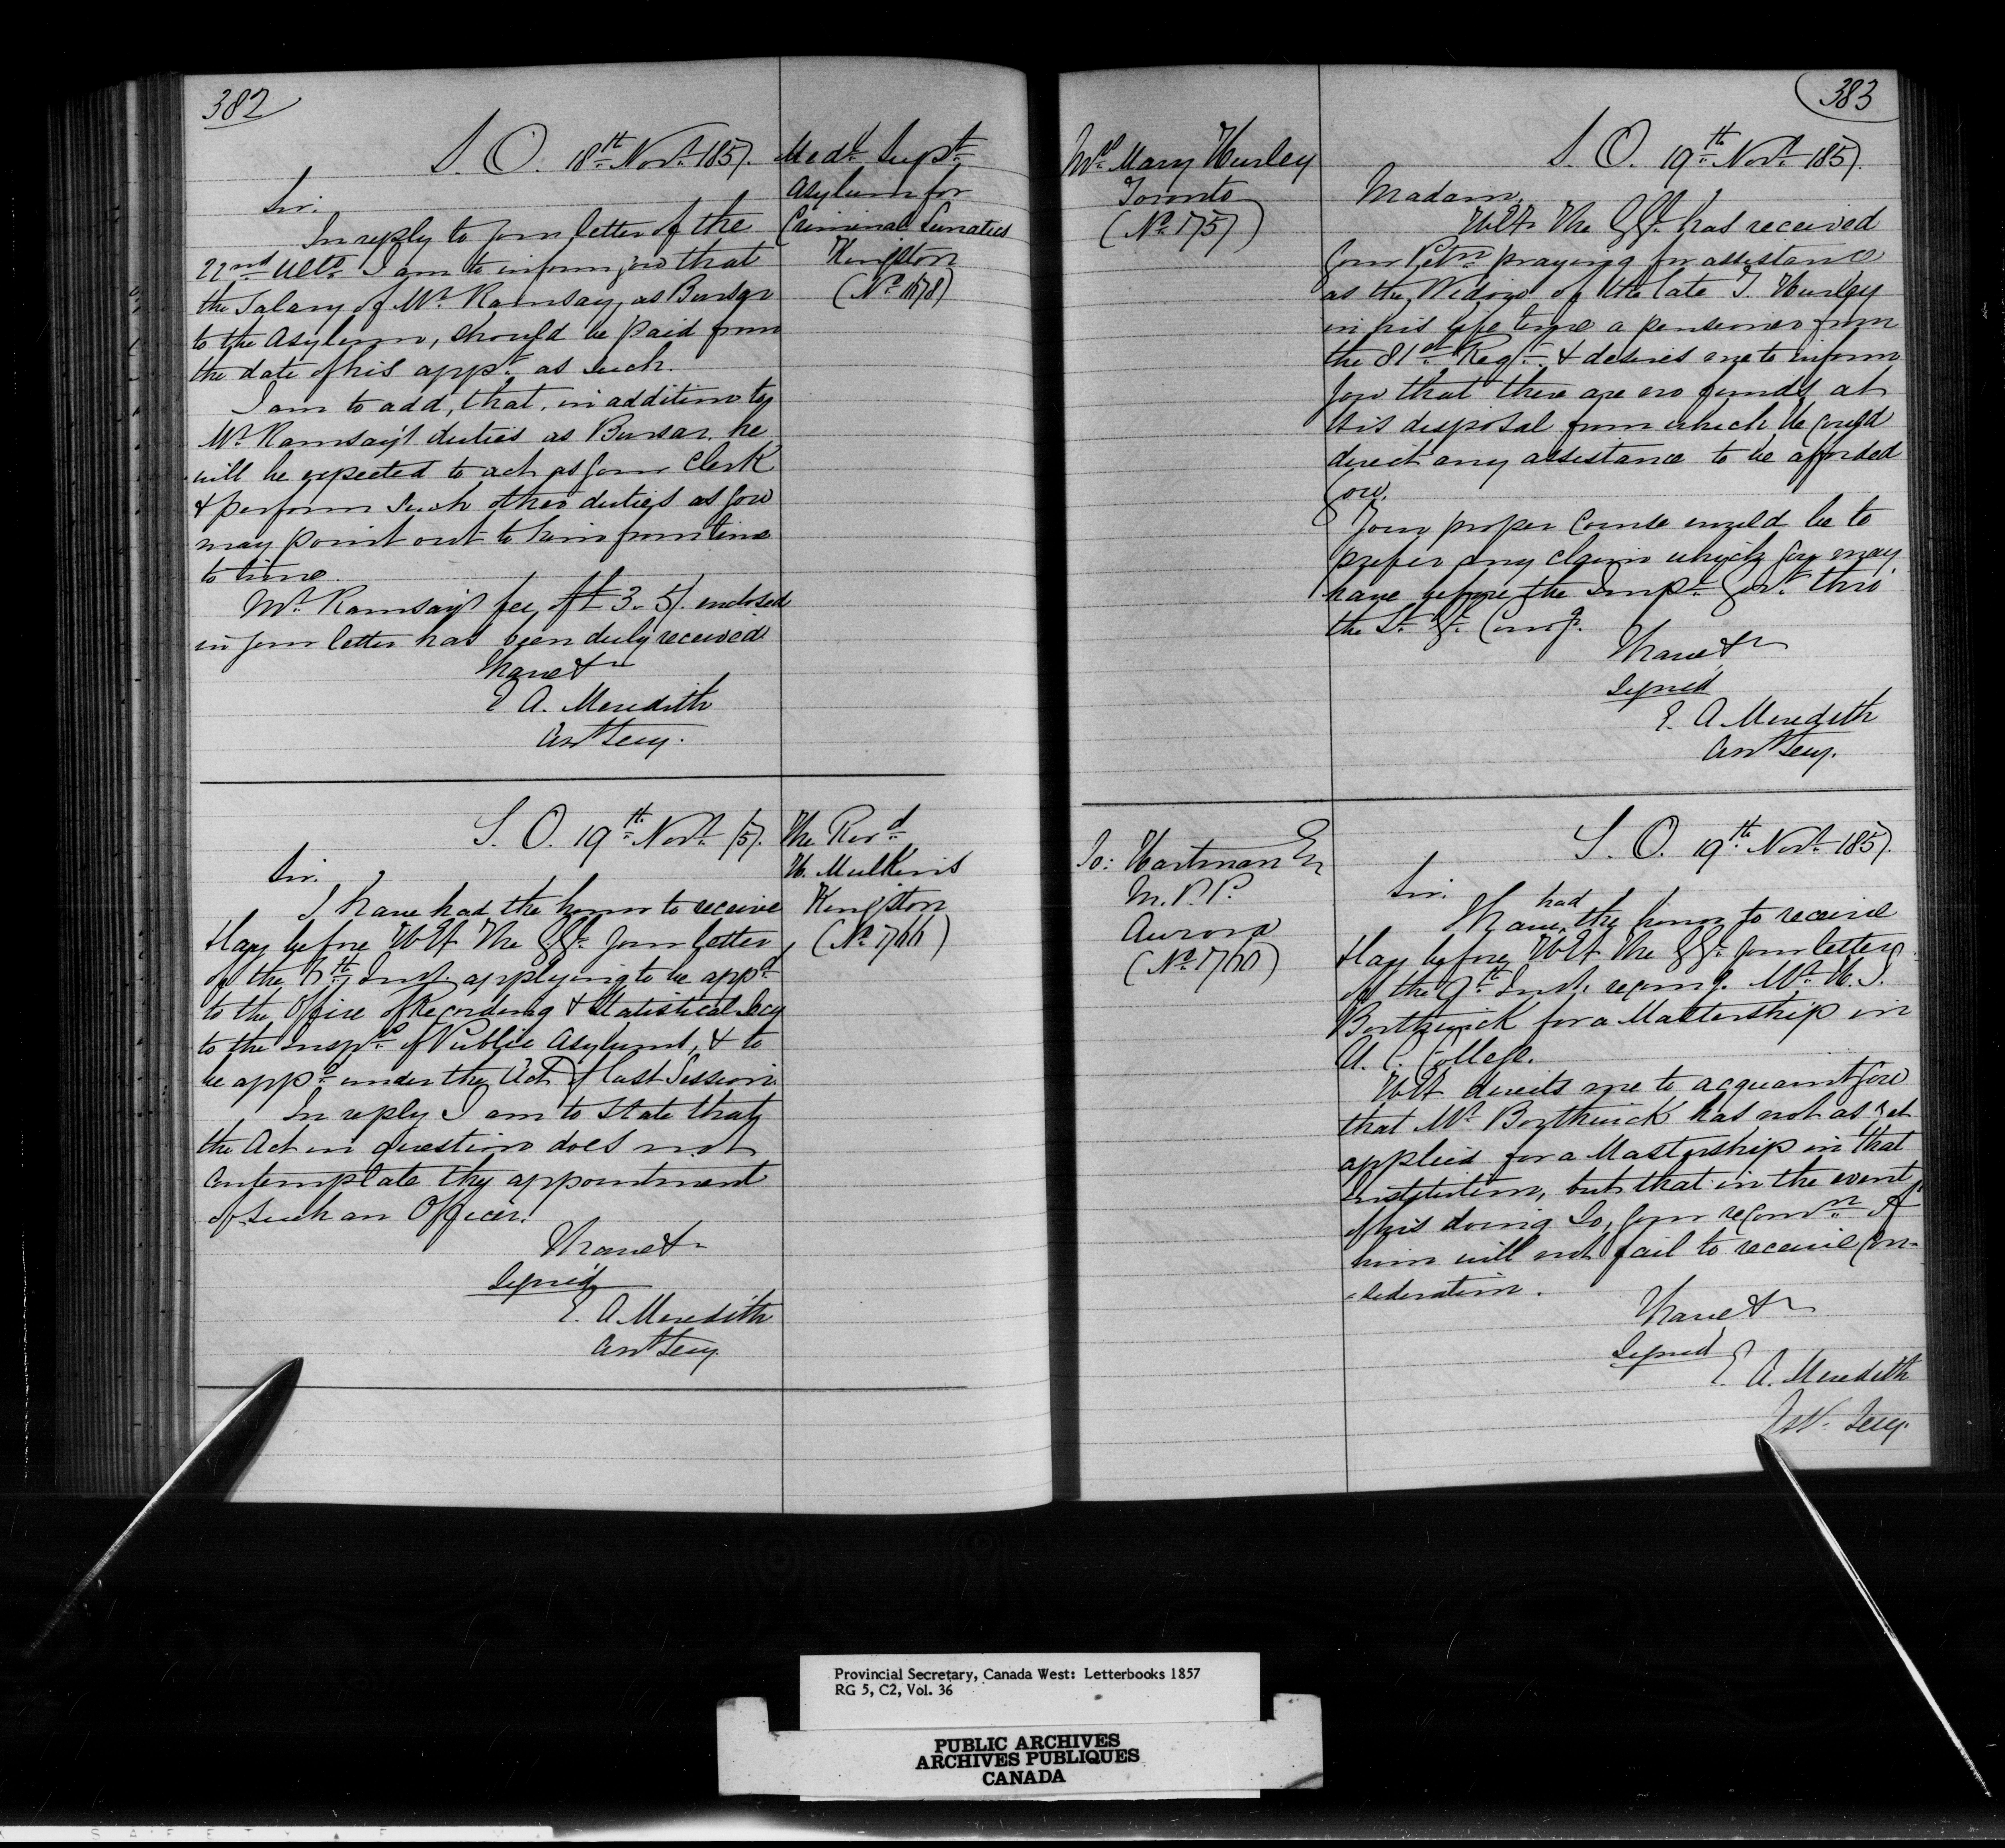 382
S. O. 18th Novr. 1857.
Medl. Supt.
Asylum for
Criminal Lunatics
Kingston
(No. 1678)
Sir.
In reply to your letter of the
22nd Ulto. I am to inform you that
the Salary of Mr. Ramsay, as Bursar
to the Asylum, should be paid from
the date of his appt. as such.
I am to add, that, in addition to
Mr. Ramsay's duties as Bursar, he
will be expected to act as your Clerk
& perform such other duties as you
may point out to him from time
to time.
Mr. Ramsay's fee, of £3. 5/. enclosed
in your letter has been duly received
I have &c
E A. Meredith
Asst Secy.
S. O. 19th Novr. /57.
The Revd.
H. Mulkins
Kingston
(No. 1766)
Sir.
I have had the honor to receive
& lay before H E the G. G. your letter
of the Inst. applying to be appd.
to the Office of Recording & Statistical Secy
to the Insprs. of Public Asylums, & to
be appd. under the Act of last Session.
In reply I am to state that
the Act in question does not
contemplate the appointment
of such an Officer.
I have &c
Signed
E. A. Meredith
Asst Secy.
383
Mrs. Mary Hurley
Toronto
(No. 1757)
S. O. 19th Novr. 1857.
Madam,
H. E. The G. G. has received
your Petn. praying for assistance
as the Widow of the late T. Hurley
in his life time a pensioner from
the 81st Regt. & desires me to inform
you that there are no funds at
His disposal from which He could
direct any assistance to be afforded
you.
Your proper course would be to
prefer any claim which you may
have before the Impl. Govt. thro'
the
I have &c
Signed
E. A. Meredith
Asst Secy.
Jo: Hartman Er
M. P. P.
Aurora
(No. 1760)
S. O. 19th Novr. 1857.
Sir.
I have had the honor to receive
& lay before H E the G. G. your letter
of the 9th Inst. recomg. Mr. H. J.
Borthwick for a Mastership in
U. C. College.
H E directs me to acquaint you
that Mr. Borthwick has not as yet
applied for a Mastership in that
Institution, but that in the event
of his doing so, your recomn. of
him will not fail to receive con-
-sideration.
I have &c
Signed
E. A. Meredith
Asst. Secy.
Provincial Secretary, Canada West: Letterbooks 1857
RG 5, C2, Vol. 36
PUBLIC ARCHIVES
ARCHIVES PUBLIQUES
CANADA